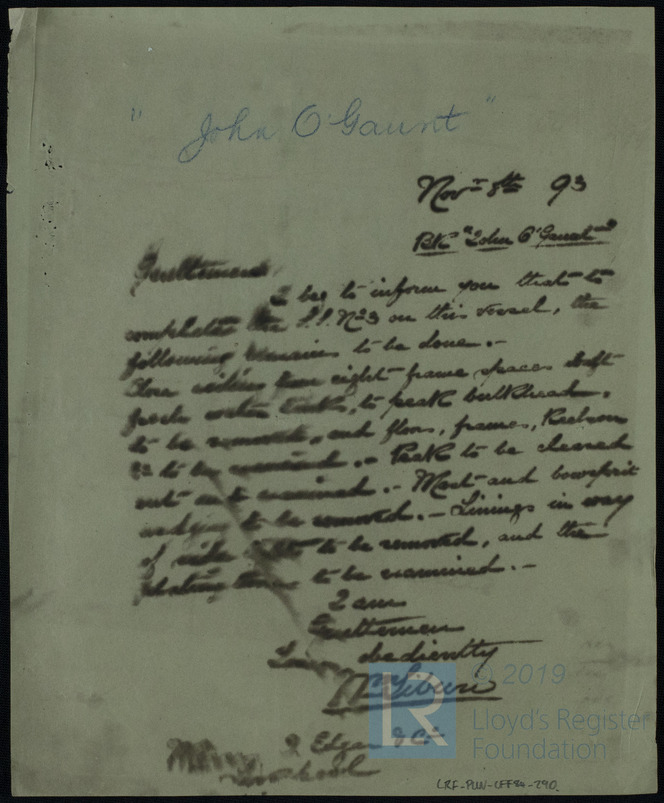 " John O'Gaunt "
Novr 8th 93
BK "John O'Gaunt"
Gentlemen,
I beg to inform you that to
complete the S.S. No 3 on this vessel, the
following remains to be done. -
Close ceiling from eight frame spaces abaft
fresh water tanks, to peak bulkhead,
to be removed, and floors, frames, Keelson
&c to be examined. - Peak to be cleared
out and examined. - Mast and bowsprit
wedges to be removed. - Linings in way
of side lights to be removed, and the
plating there to be examined. -
I am
Gentlemen
Your obediently
Messrs J Edgar & Co
Liverpool
LR
© 2019
Lloyd's Register
Foundation
LRF-PUN-LFF84-290